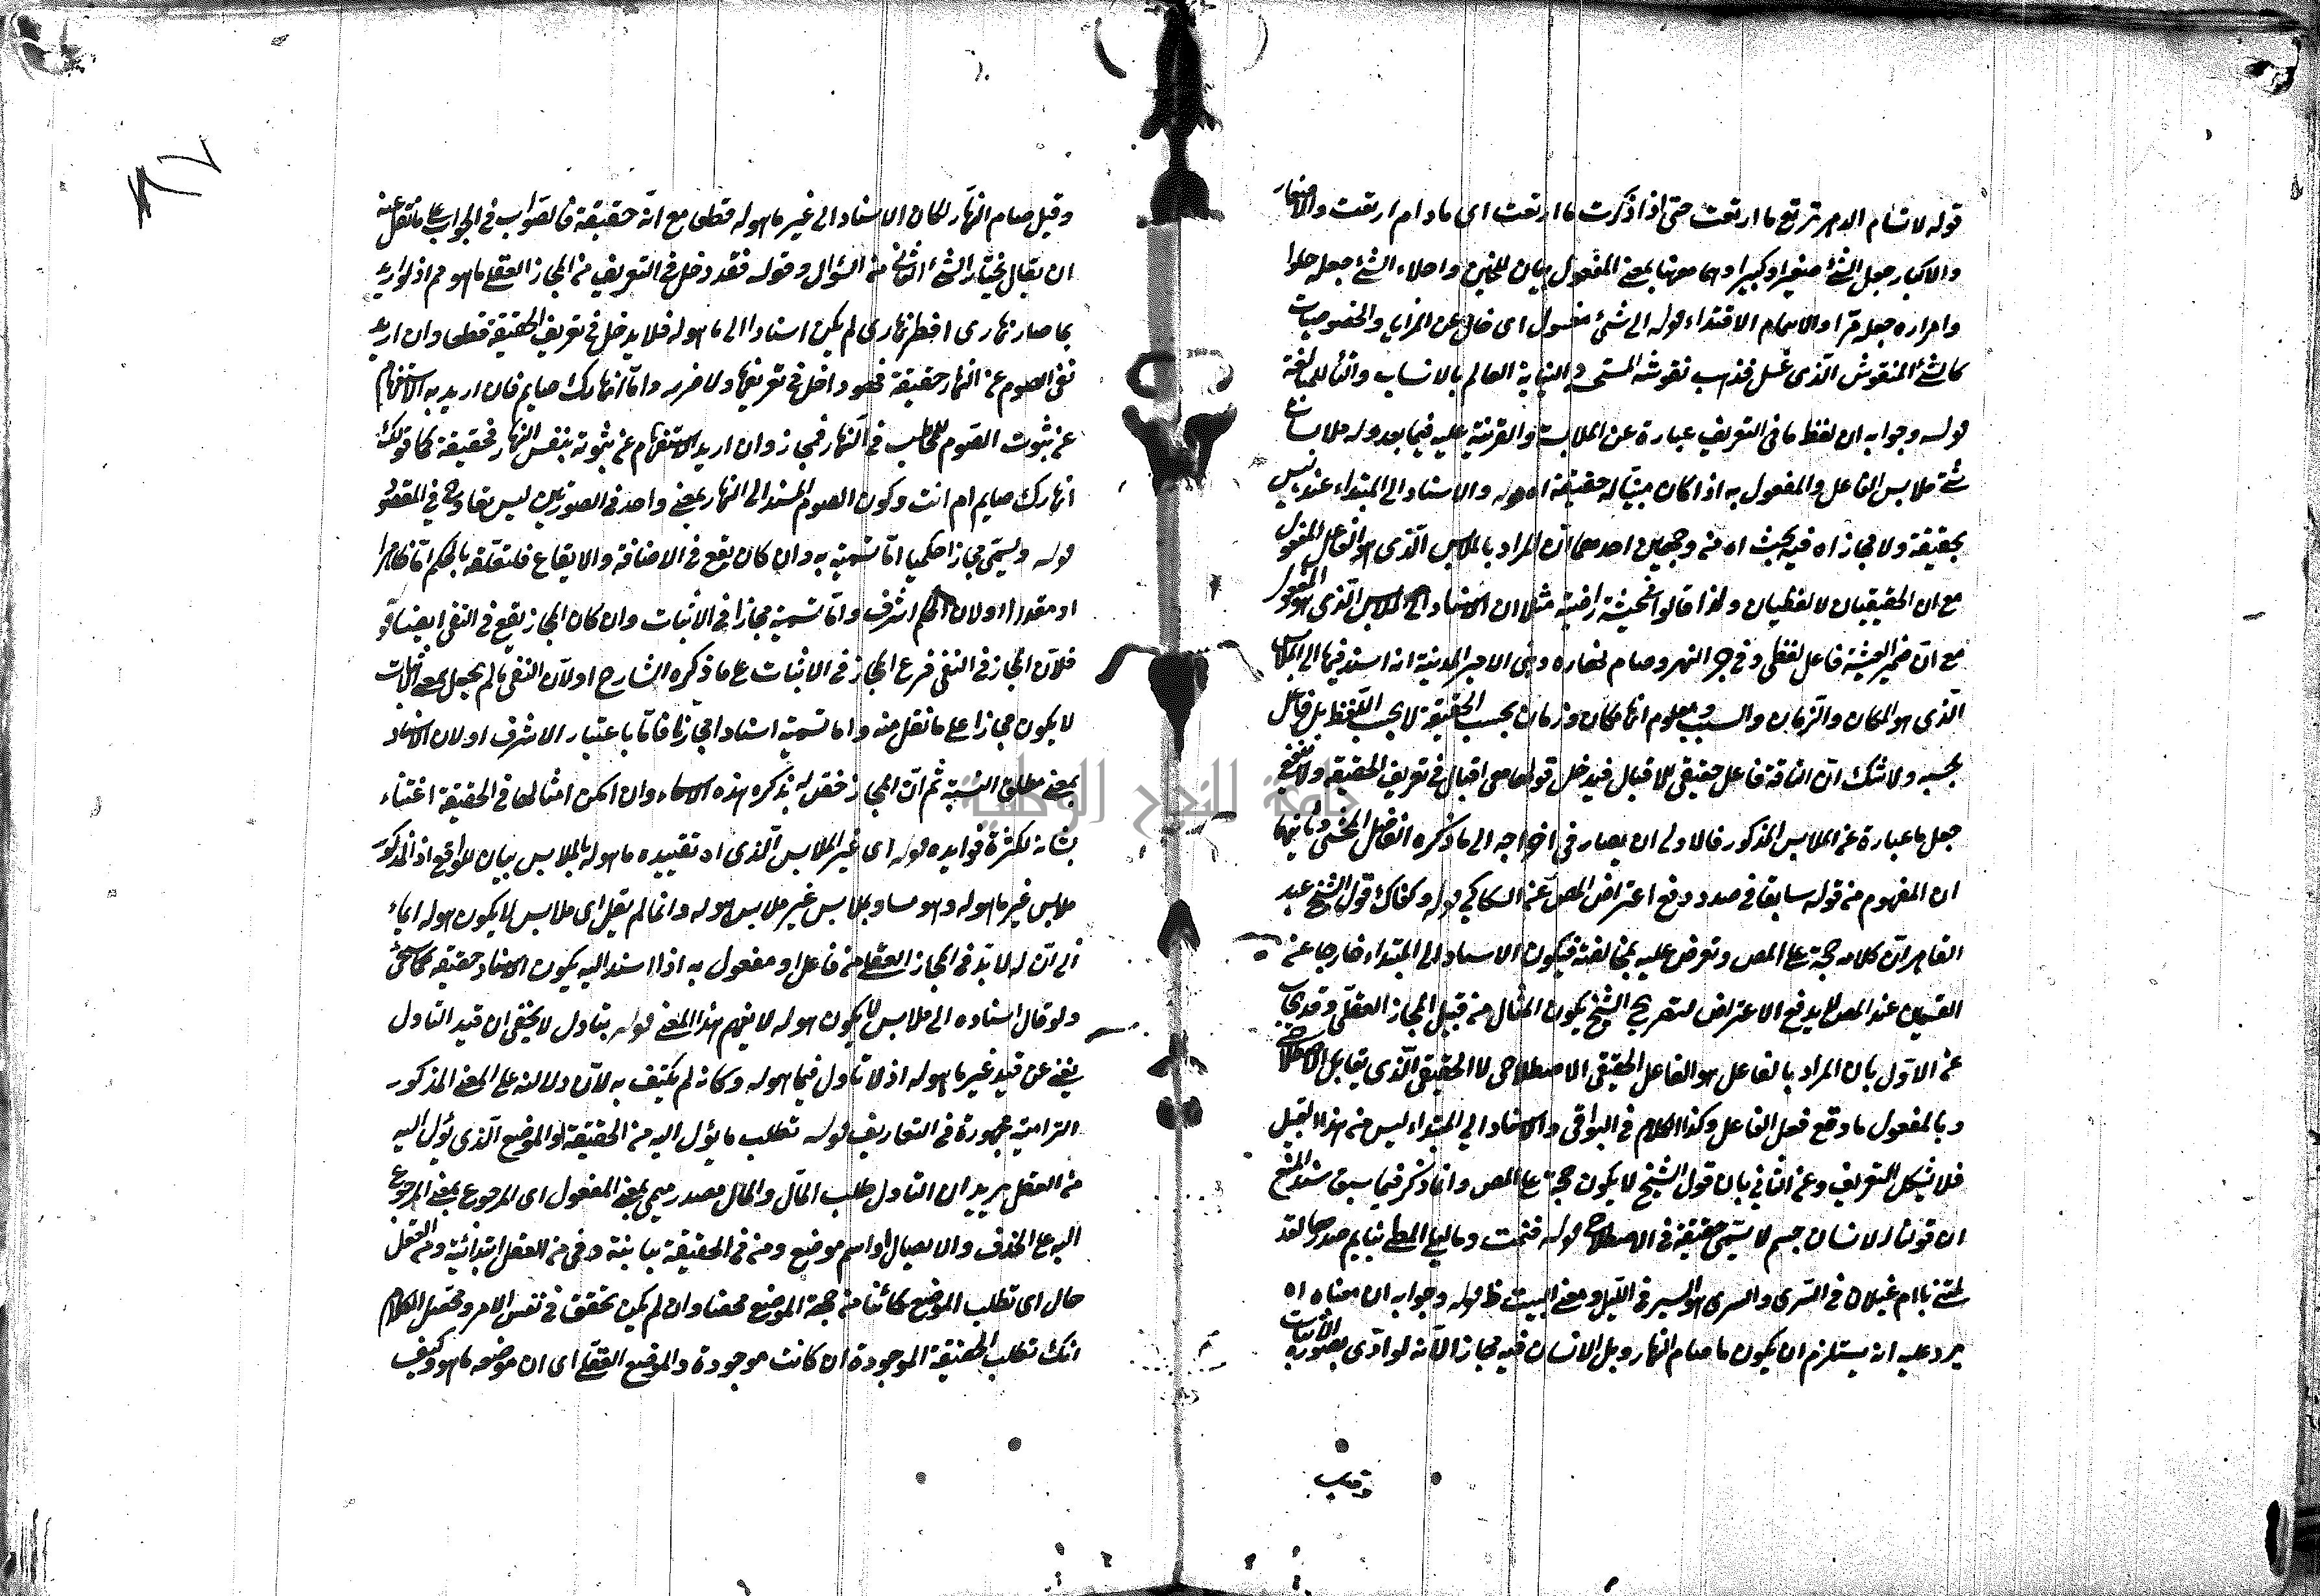 قوله لا تسام الدهر ترتع ما ارتعت حتى اذا ذكرت ما ارتعت اى ما دام ارتعت والاصغار
والاكبار جعل الشئ صغيرا وكبيرا وهما بمعنى المفعول بيان للجنين واحلاء الشئ جعله حلوا
وامراره جعله مرا والايتمام الاقتداء قوله الى شئ مغسول اى خال عن المزايا والخصوصيات
كالشئ المنقوش الذى غسل فذهب نقوشه المستحسنة والنسابة العالم بالانساب والتاء للمبالغة
قوله وجوابه ان لفظ ما فى التعريف عبارة عن الملابسة والقرينة عليه فيما بعد وله ملابسات
شتى ملابس الفاعل والمفعول به اذا كان مبنيا له حقيقة اه قوله والاسناد الى المبتداء عنده ليس
بحقيقة ولا مجاز اه فيه بحث اه من وجهين احدهما ان المراد بالملابس الذى هو الفاعل المفعول
مع ان الحقيقيان لا لفظيان ولذا قالوا فى عيشة راضية مثلا ان الاسناد الى الملابس الذى هو المفعول
مع ان ضمير العيشة فاعل لفظى وفى جرى النهر وصام نهاره وبنى الامير المدينة انه اسند فيها الى الملابس
الذى هو المكان والزمان والسبب ومعلوم انها مكان وزمان بحسب الحقيقة لا بحسب اللفظ بل فاعل
بحسبه ولا شك ان الناقة فاعل حقيقى للاقبال فيدخل قولها هى اقبال فى تعريف الحقيقة ولا ينتفى
جعل ما عبارة عن الملابس المذكور فالاولى ان يصار فى اخراجه الى ما ذكره الفاضل المحشى وثانيهما
ان المفهوم من قوله سابقا فى صدد دفع اعتراض المص عن السكاكى قوله وكفاك قول الشيخ عبد
القاهر ان كلامه حجة على المص وتعرض عليه بمخالفته فيكون الاسناد الى المبتداء خارجا عن
القسمين عند المص لا يدفع الاعتراض لتصريح الشيخ بكون المثال من قبيل المجاز العقلى وقد يجاب
عن الاول بان المراد بالفاعل هو الفاعل الحقيقى الاصطلاحى لا الحقيقى الذى يقابل الاصطلاحى
وبالمفعول ما وقع فعل الفاعل وكذا الكلام فى البواقى والاسناد الى المبتداء ليس من هذا القبيل
فلا يشكل التعريف وعن الثانى بان قول الشيخ لا يكون حجة على المص وانما ذكر فيما سبق سند المنع
ان قولنا الانسان جسم لا يسمى حقيقة فى الاصطلاح قوله فنمت وما ليل المطى بنايم صدرها لقد
لمتنا يا ام غيلان فى السرى والسرى هو السير فى الليل ومعنى البيت ظ قوله وجوابه ان معناه اه
يرد عليه انه يستلزم ان يكون ما صام النهار وبل الانسان فيه مجازا لانه لو ادى بصورة الاثبات
وقيل
وقيل صام النهار لكان الاسناد الى غير ما هو له قطعا مع انه حقيقة فالصواب فى الجواب على ما نقل عنه
ان يقال نختار الشق الثانى من السؤال وقوله فقد دخل فى التعريف من المجاز العقلى ما هو مم اذ لو اريد
بما صار نهارى افطر نهارى لم يكن اسنادا الى ما هو له فلا يدخل فى تعريف الحقيقة قطعا وان اريد
نفى الصوم عن النهار حقيقة فهو داخل فى تعريفها ولا ضرر واما انهارك صايم فان اريد به الاستفهام
عن ثبوت الصوم للمخاطب فى النهار فمجاز وان اريد الاستفهام عن ثبوته بنفس النهار فحقيقة كما قولك
انهارك صايم ام انت وكون الصوم المسند الى النهار بمعنى واحد فى الصورتين ليس بقادح فى المقصود
قوله ويسمى مجازا حكميا اما تسميته به وان كان يقع فى الاضافة والايقاع فلتعلقه بالحكم اما ظاهرا
او مقدرا او لان الحكم اشرف واما تسميته مجازا فى الاثبات وان كان المجاز يقع فى النفى ايضا
فلان المجاز فى النفى فرع المجاز فى الاثبات على ما ذكره الشارح او لان النفى ما لم يجعل بمعنى الاثبات
لا يكون مجازا على ما نقل منه واما تسميته اسنادا مجازيا فاما باعتبار الاشرف او لان الاسناد
بمعنى مطلق النسبة ثم ان المجاز خص له بذكره هذه الاسماء وان امكن امثالها فى الحقيقة اعتناء
بشانه لكثرة فوايده قوله اى غير الملابس الذى اه تقييده ما هو له بالملابس بيان للواقع اذ المذكور
ملابس غير ما هو له وهو مساو بملابس غير ملابس هو له وانما لم يقل اى ملابس لا يكون هو له ايماء
الى ان له لا بد فى المجاز العقلى من فاعل او مفعول به اذا اسند اليه يكون الاسناد حقيقة كما سيجئ
ولو قال اسناده الى ملابس لا يكون هو له لا يفهم هذا المعنى قوله بتاول لا يخفى ان قيد التاول
يغنى عن قيد غير ما هو له اذ لا تاول فيما هو له وكانه لم يكتف به لان دلالته على المعنى المذكور
التزامية مهجورة فى التعاريف قوله تطلب ما يؤل اليه من الحقيقة او الموضع الذى يؤل اليه
من العقل يريد ان التاول طلب المآل والمآل مصدر ميمى بمعنى المفعول اى المرجوع بمعنى المرجوع
اليه على الحذف والايصال او اسم موضع ومن فى الحقيقة بيانية وفى من العقل ابتدائية ومن العقل
حال اى تطلب الموضع كائنا من جهة الموضع محضا وان لم يكن تحقق فى نفس الامر ومحصل الكلام
انك تطلب الحقيقة الموجودة ان كانت موجودة والموضع العقلى اى ان موضعه ما هو وكيف
جامعة النجاح الوطنية